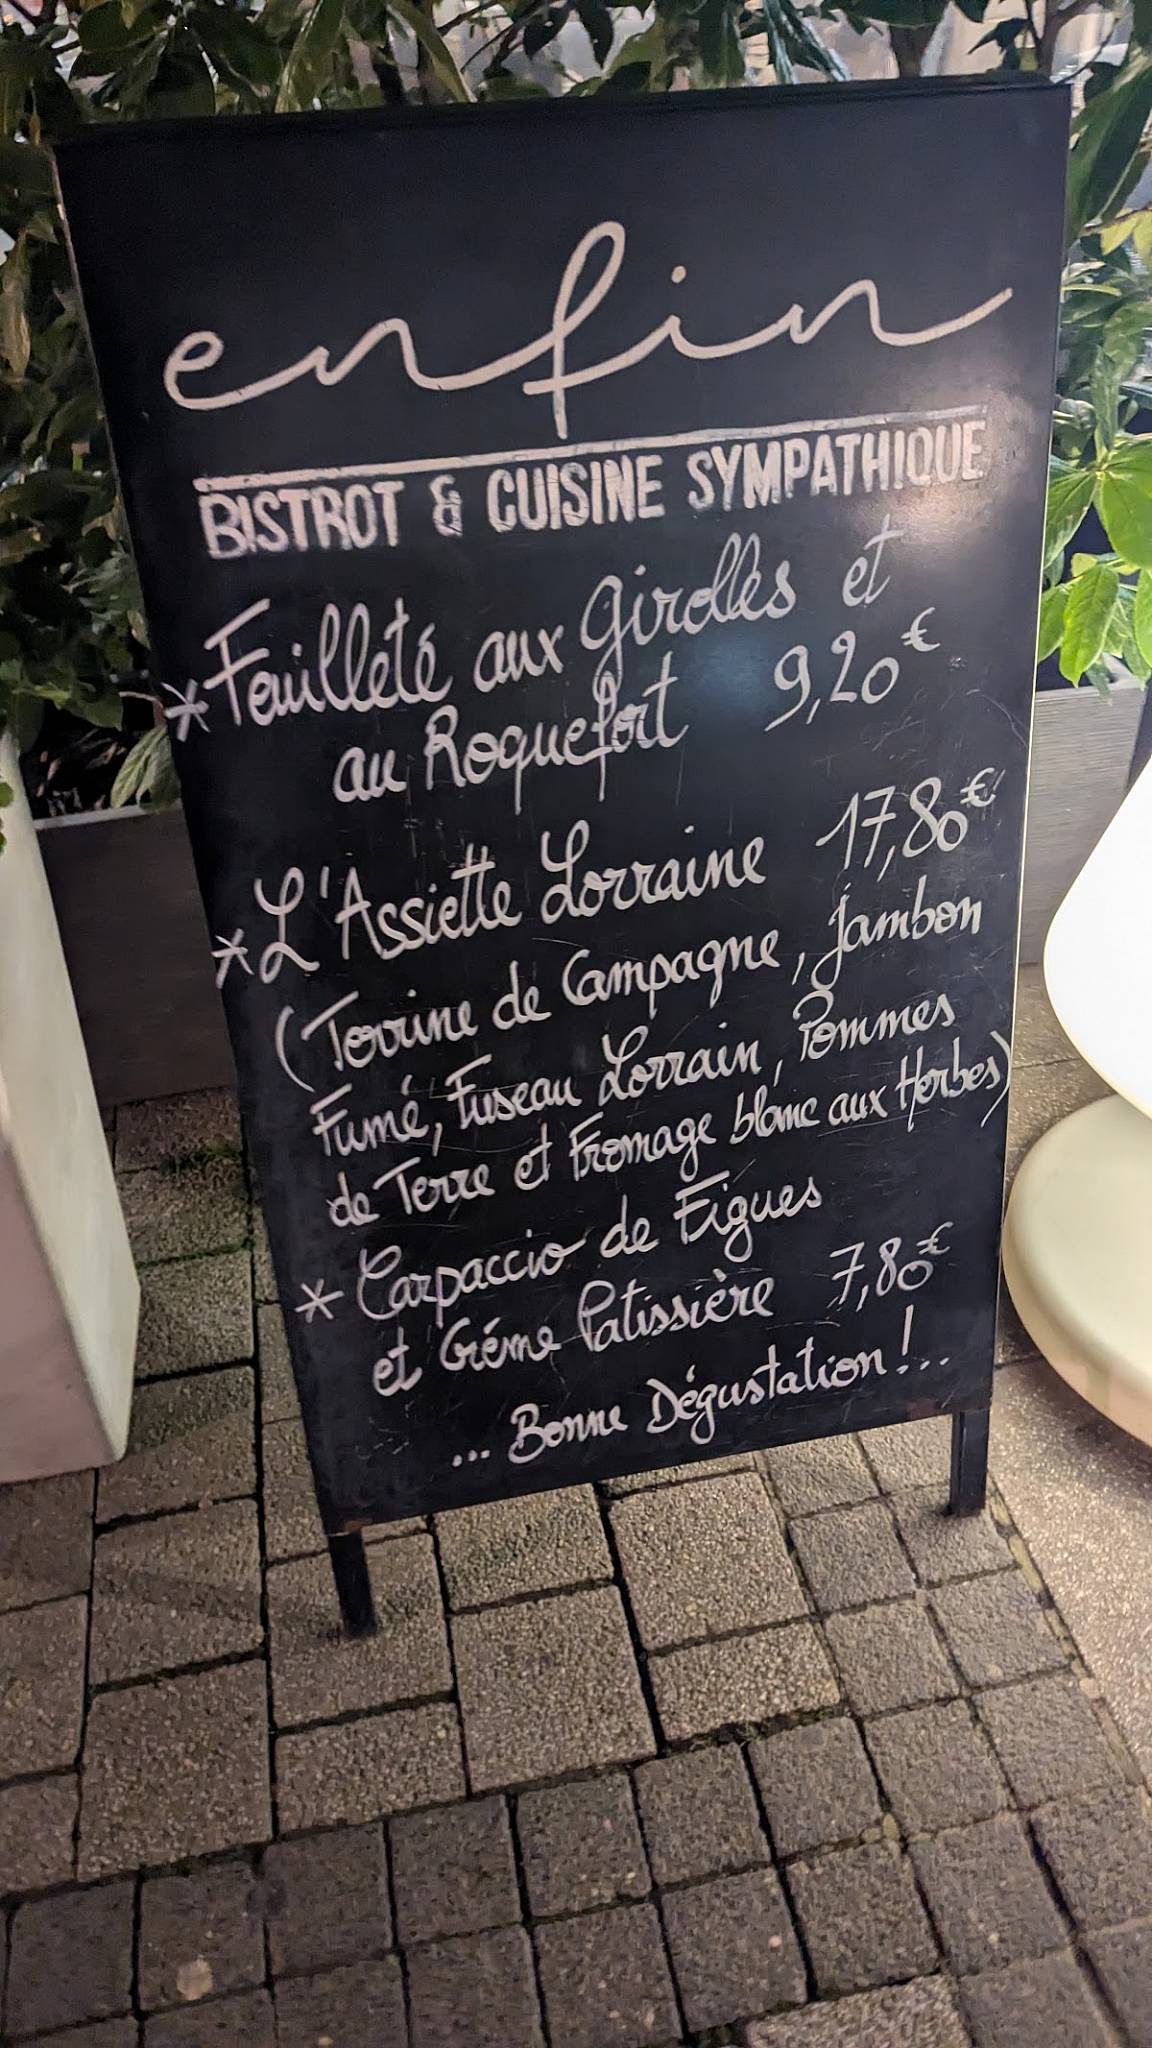 enfin
BISTROT & CUISINE SYMPATHIQUE
* Feuilleté aux girolles et
au Roquefort 9,20€
* L'Assiette Lorraine 17,80€
(Terrine de Campagne, jambon
Fumé, Fuseau Lorrain, Pommes
de Terre et Fromage blanc aux Herbes)
* Carpaccio de Figues
et Créme Patissière 7,80€
... Bonne Dégustation!..